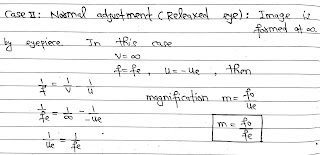 Case II: Normal adjustment (Relaxed eye): Image is
formed at ∞
by eyepiece. In this case
v = ∞
f = fe , u = -ue , then
1/f = 1/v - 1/u
magnification m = fo/ue
1/fe = 1/∞ - 1/-ue
m = fo/fe
1/ue = 1/fe